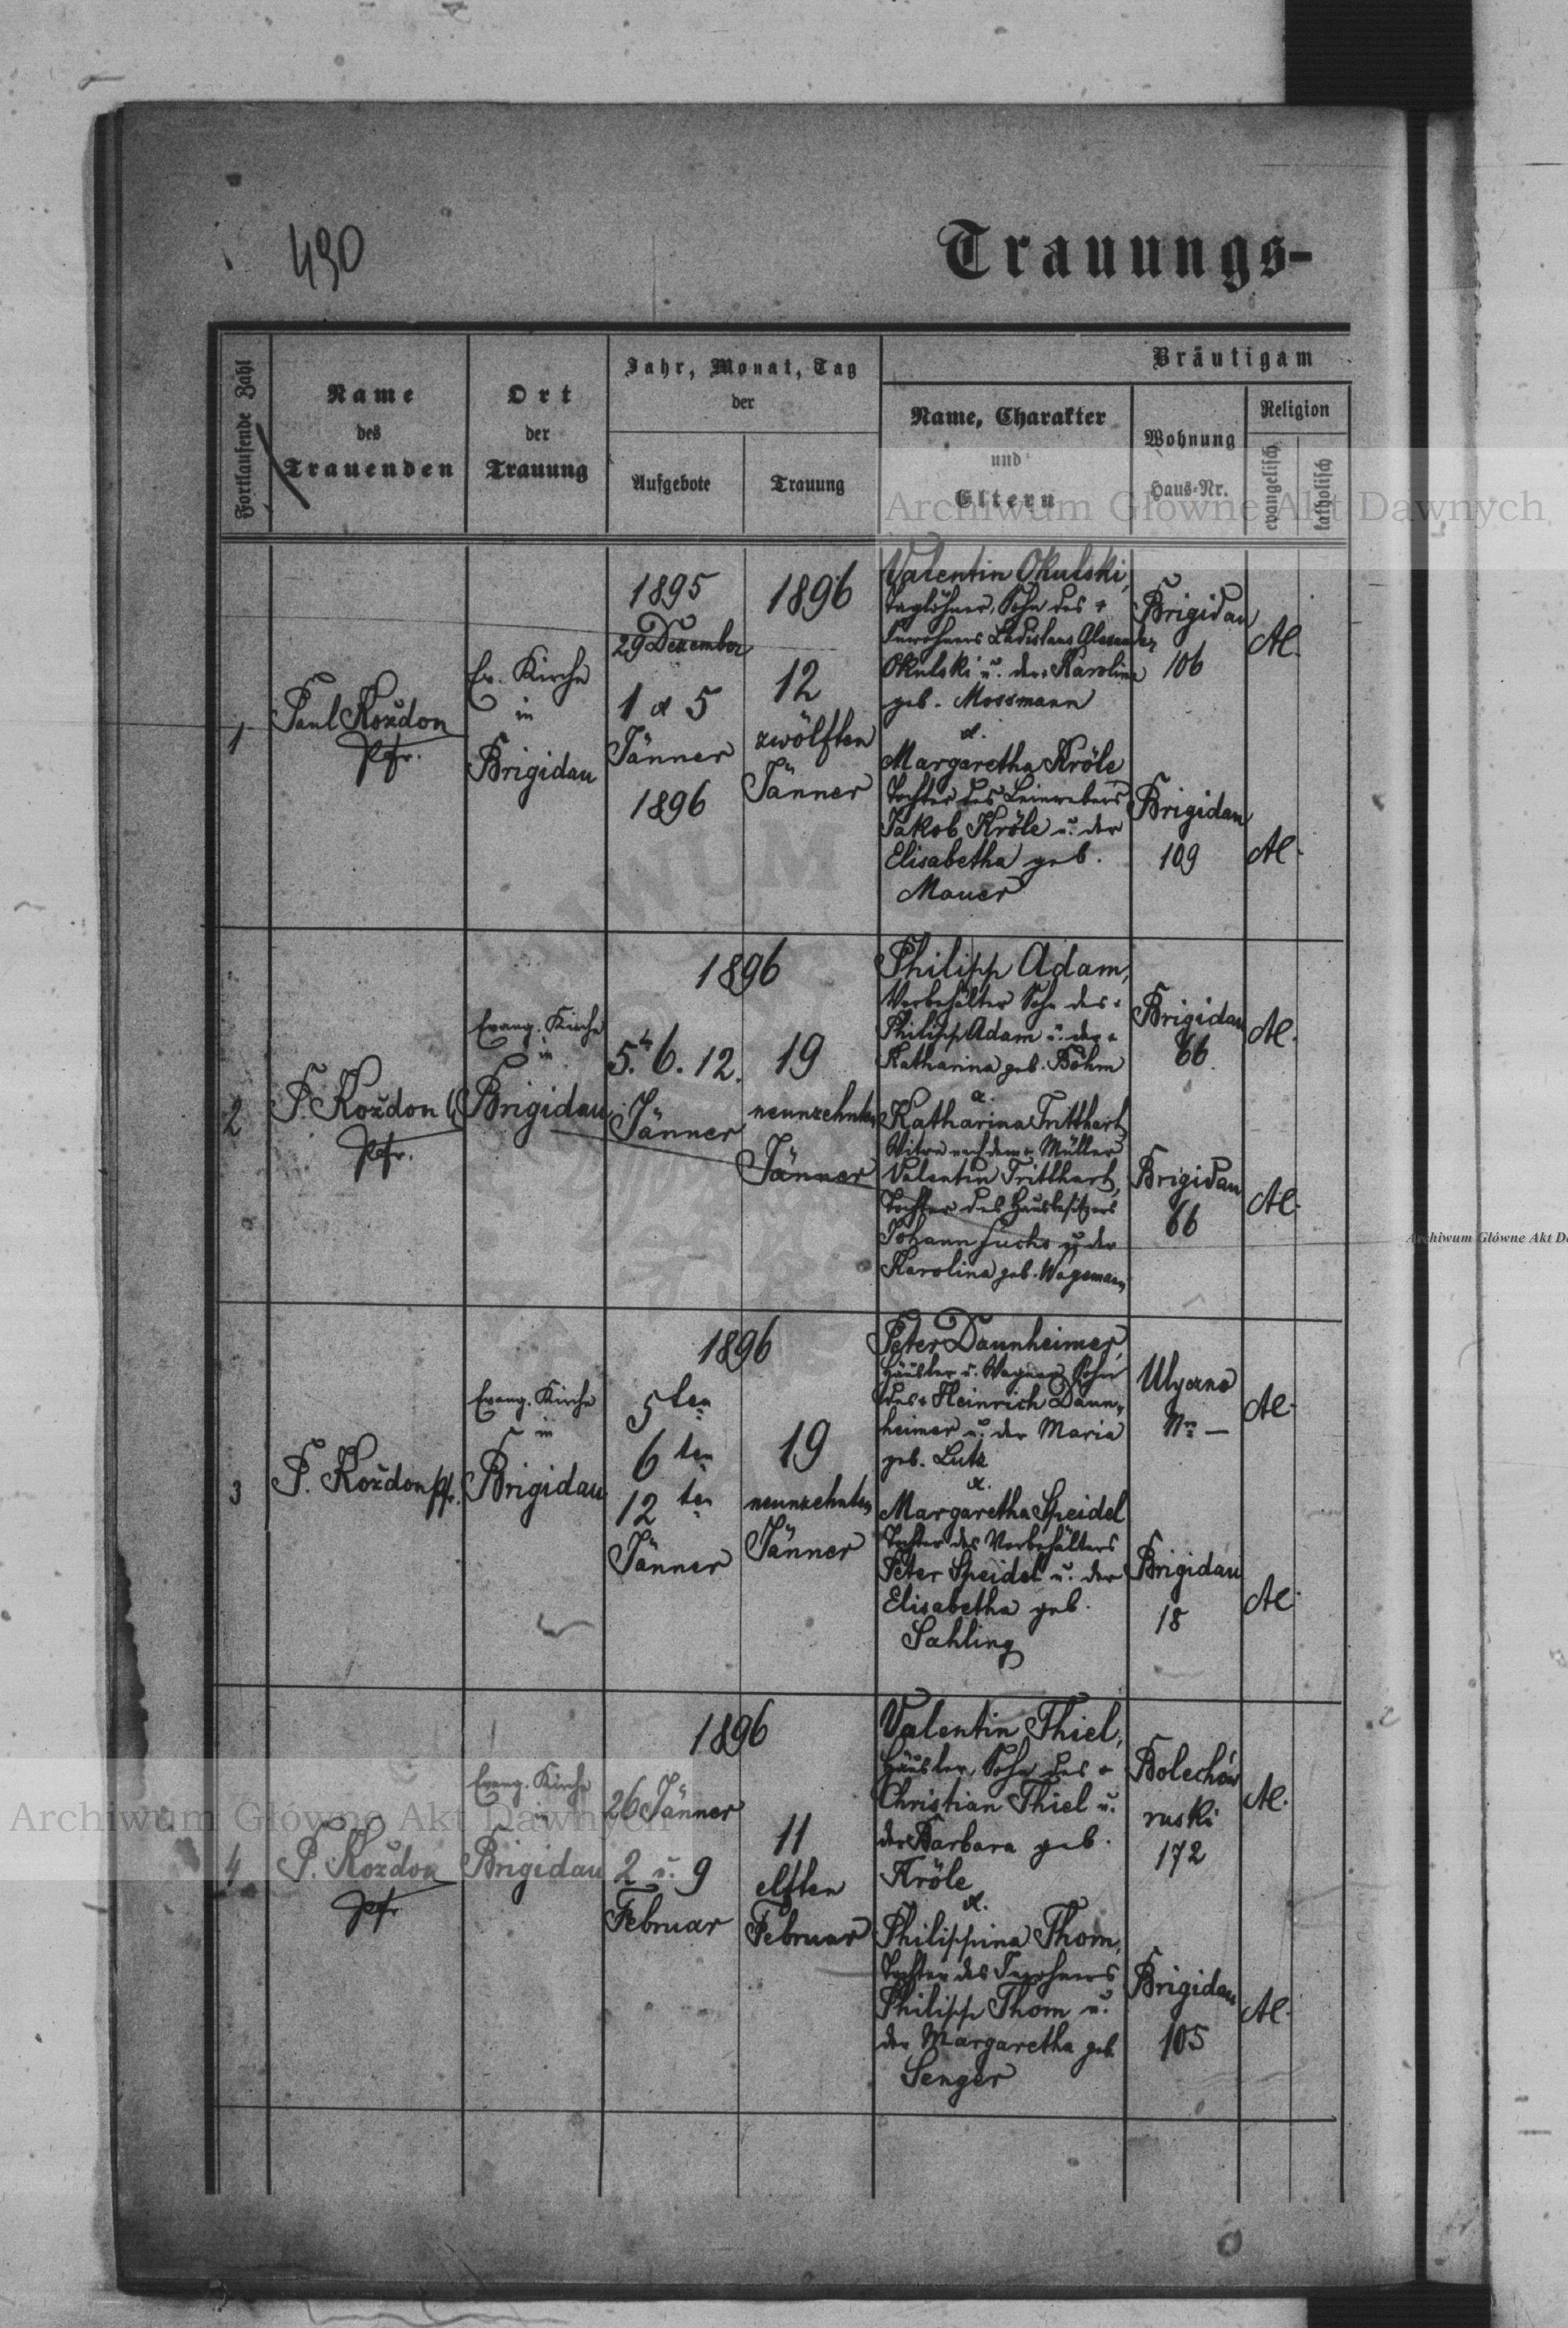 490
Trauungs-
Fortlaufende Zahl
Name
des
Trauenden
Ort
der
Trauung
Jahr, Monat, Tag
der
Aufgebote
Trauung
Bräutigam
Name, Charakter
und
Eltern
Wohnung
Haus-Nr.
Religion
evangelisch
katholisch
1
Paul Kożdon
Pfr.
Ev. Kirche
in
Brigidau
1895
29 Dezember
1 & 5
Jänner
1896
1896
12
zwölften
Jänner
Valentin Okulski,
Taglöhner, Sohn des +
Inwohners Ladislaus Alexander
Okulski u. der Karolina
geb. Mossmann
&
Margaretha Kröle
Tochter des Leinwebers
Jakob Kröle u. der
Elisabetha geb.
Mauer
Brigidau
106
Brigidau
109
AC.
AC.
2
P. Kożdon
Pfr.
Evang. Kirche
in
Brigidau
1896
5. 6. 12.
Jänner
19
neunzehnten
Jänner
Philipp Adam,
Vorbehälter Sohn des +
Philipp Adam u. der +
Katharina geb. Böhm
&
Katharina Tritthart
Witwe nach dem + Müller
Valentin Tritthart,
Tochter des Hausbesitzers
Johann Fuchs u. der
Karolina geb. Wagemann
Brigidau
66
Brigidau
66
AC.
AC.
3
P. Kożdon Pfr.
Evang. Kirche
in
Brigidau
1896
5ten
6ten
12ten
Jänner
19
neunzehnten
Jänner
Peter Daunheimer,
Häusler u. Wagner, Sohn
des + Heinrich Daun-
heimer u. der Maria
geb. Lutz
&
Margaretha Speidel
Tochter des Vorbehälters
Peter Speidel u. der
Elisabetha geb.
Sahling
Ulyczno
Nro —
Brigidau
18
AC.
AC.
4
P. Kożdon
Pfr.
Evang. Kirche
in
Brigidau
1896
26 Jänner
2 u. 9
Februar
11
elften
Februar
Valentin Thiel,
Häusler, Sohn des +
Christian Thiel u.
der Barbara geb.
Kröle
&
Philippina Thom,
Tochter des Inwohners
Philipp Thom u.
der Margaretha geb
Senger
Bolechów
ruski
172
Brigidau
105
AC.
AC.
Archiwum Główne Akt Dawnych
Archiwum Główne Akt Dawnych
Archiwum Główne Akt D